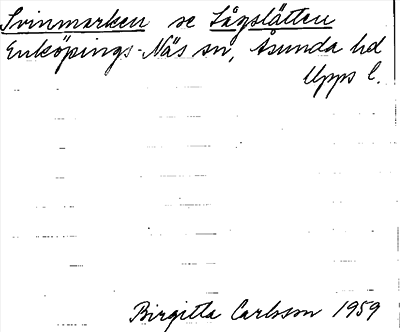 Svinmarken se Lågslätten
Enköpings-Näs sn, Åsunda hd
Upps l.
Birgitta Carlsson 1959